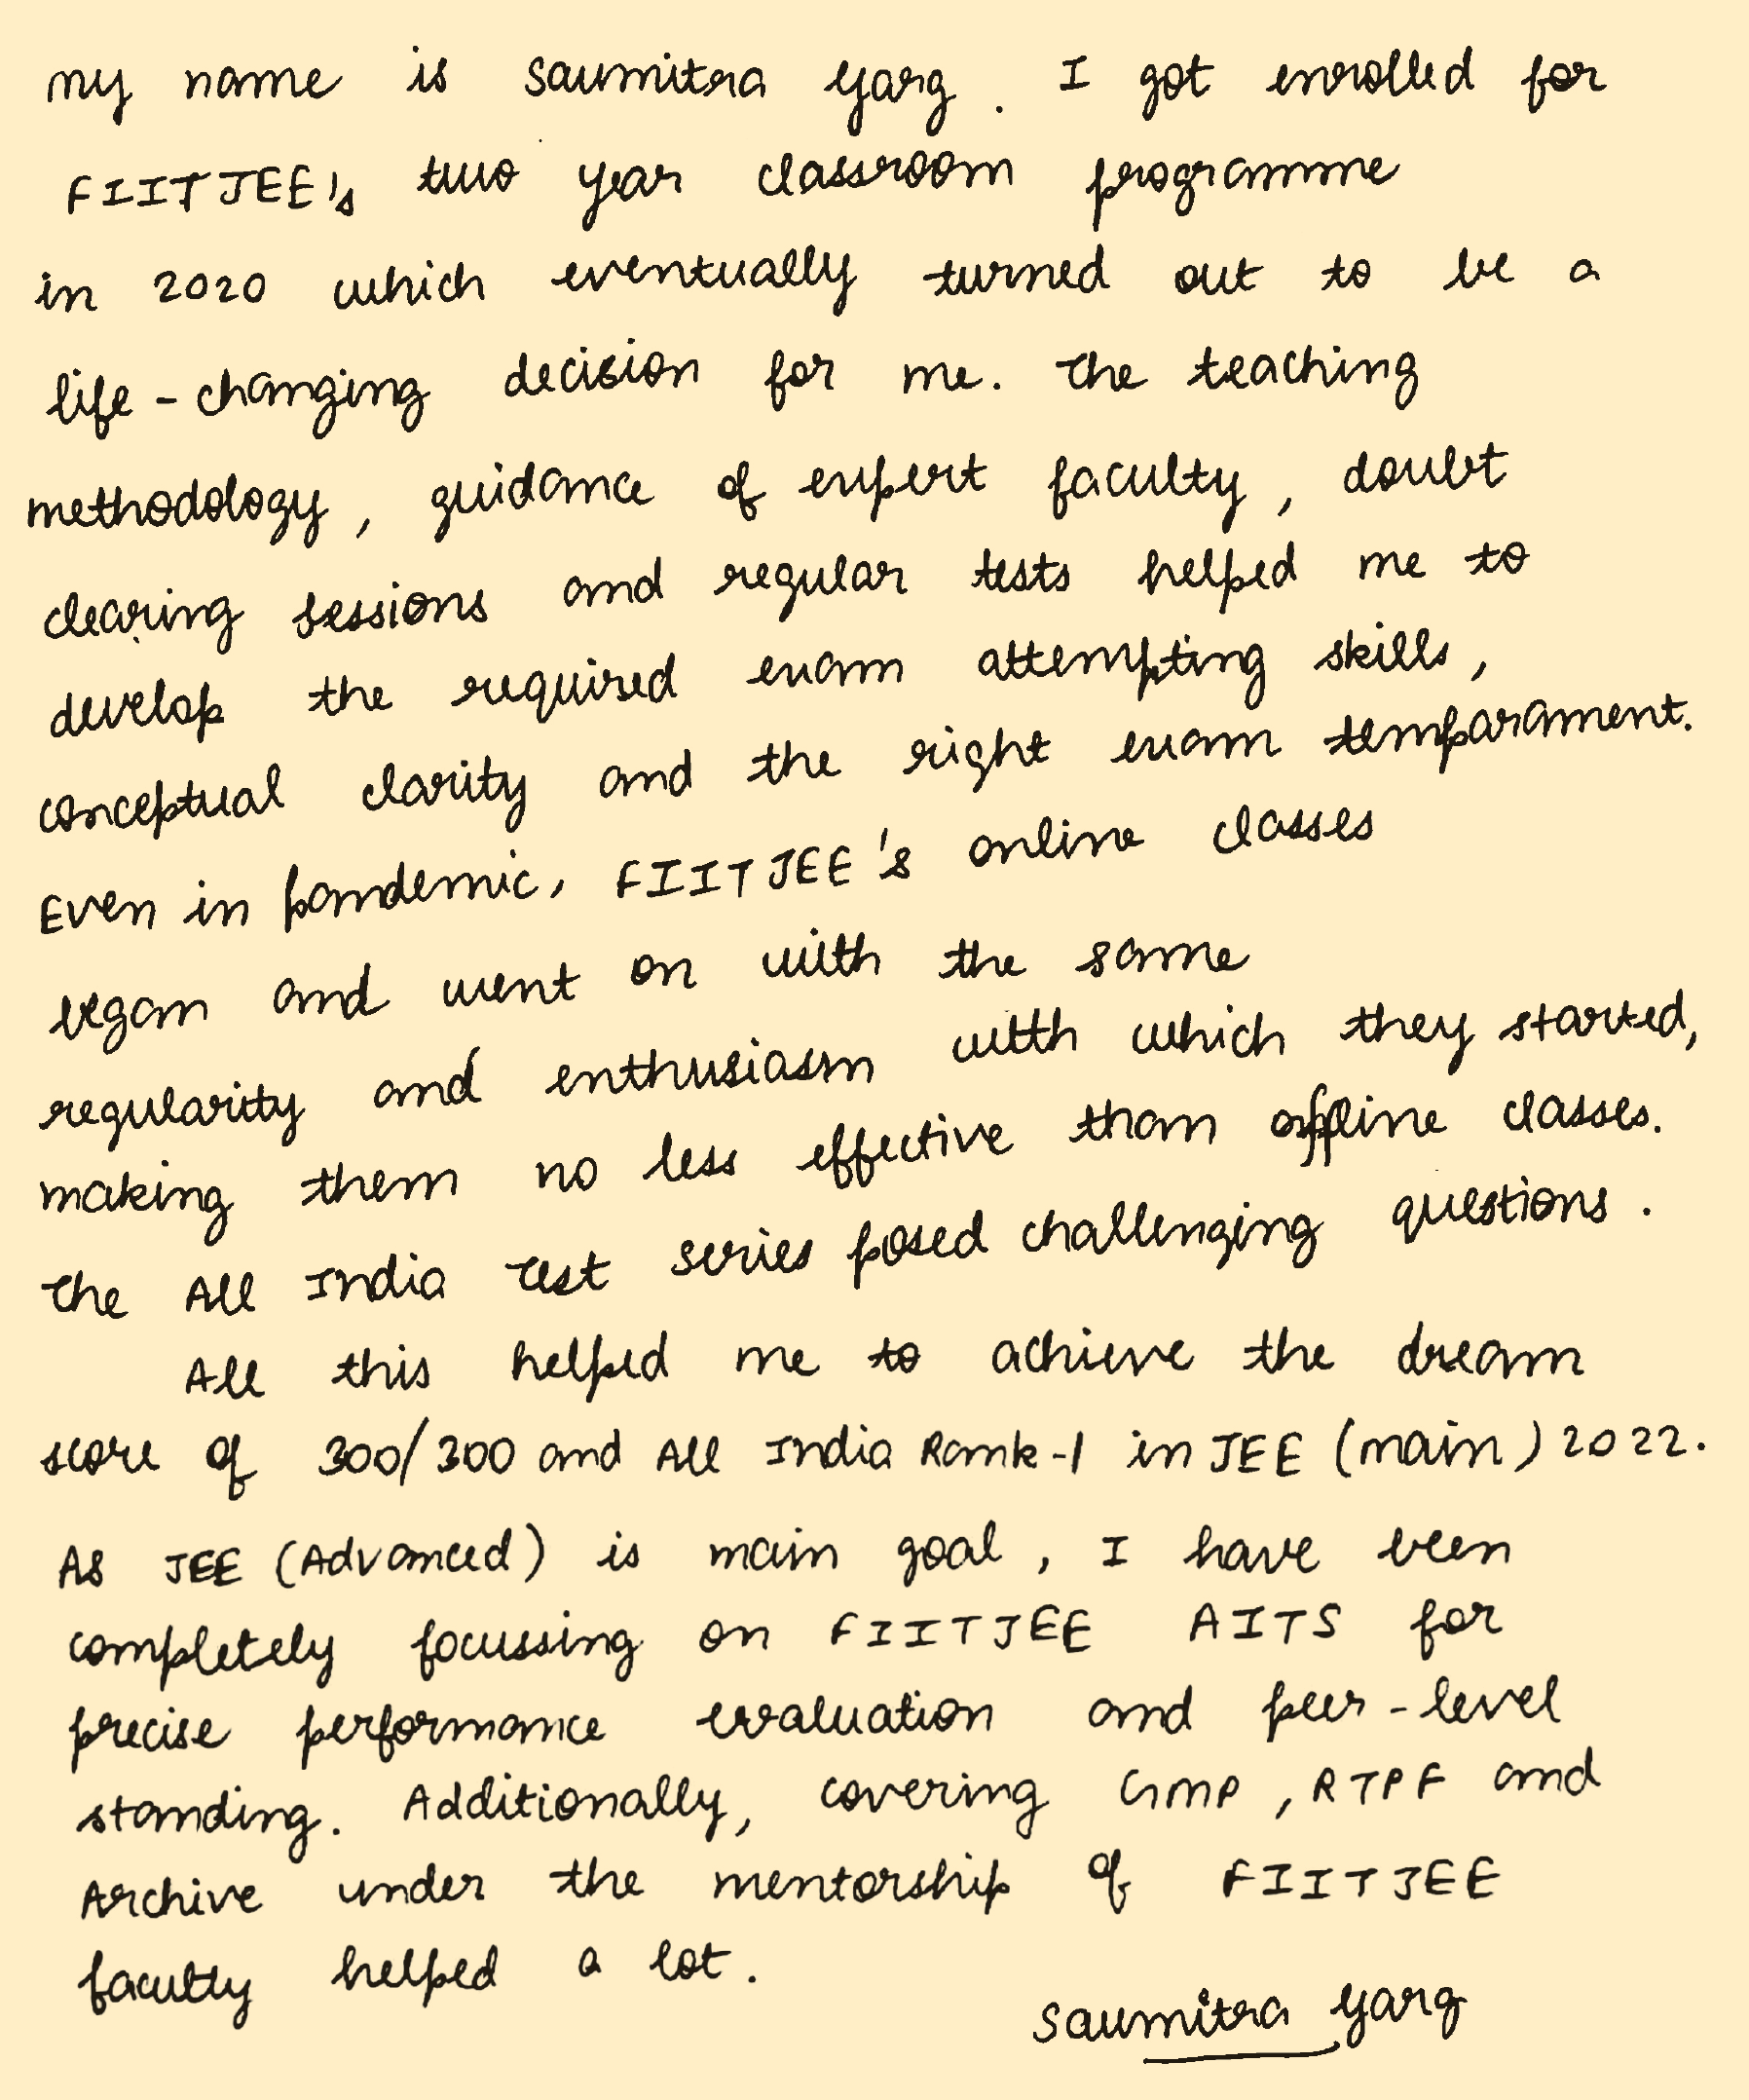 My name is Saumitra Garg. I got enrolled for
FIITJEE's two year classroom programme
in 2020 which eventually turned out to be a
life-changing decision for me. The teaching
methodology, guidance of expert faculty, doubt
clearing sessions and regular tests helped me to
develop the required exam attempting skills,
conceptual clarity and the right exam temparament.
Even in pandemic, FIITJEE's online classes
began and went on with the same
regularity and enthusiasm with which they started,
making them no less effective than offline classes.
The All India Test series posed challenging questions.
All this helped me to achieve the dream
score of 300/300 and All India Rank-1 in JEE (main) 2022.
As JEE (Advanced) is main goal, I have been
completely focussing on FIITJEE AITS for
precise performance evaluation and peer-level
standing. Additionally, covering GMP, RTPF and
Archive under the mentorship of FIITJEE
faculty helped a lot.
Saumitra Garg